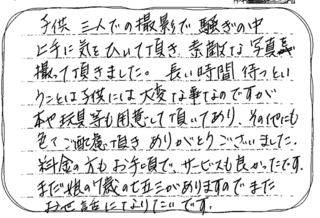 子供 三人での撮影で 騒ぎの中
上手に気をひいて頂き、素敵な写真
撮って頂きました。長い時間 待つとい
うことは子供には大変な事なのですが
本や玩具等も用意して頂いてあり、その他にも
色々ご配慮頂き ありがとうございました。
料金の方も お手頃で、サービスも良かったです。
まだ娘の7歳の七五三がありますのでまた
お世話になりたいです。